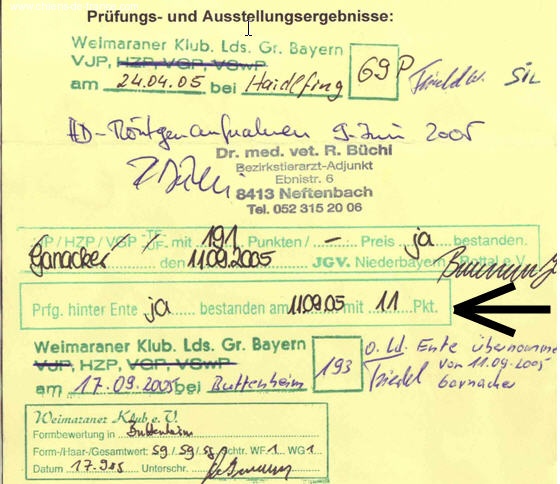 Prüfungs- und Ausstellungsergebnisse:
Weimaraner Klub. Lds. Gr. Bayern
VJP, HZP, VGP, VSwP
am 24.04.05 bei Haidlfing
69 P
SiL
HD-Röntgenaufnahmen 9. Juni 2005
Dr. med. vet. R. Büchi
Bezirkstierarzt-Adjunkt
Ebnistr. 6
8413 Neftenbach
Tel. 052 315 20 06
VJP / HZP / VGP - TF ÜF. mit 191 Punkten / – Preis ja bestanden.
Ganacker den 11.09.2005 JGV. Niederbayern Rottal e.V.
Prfg. hinter Ente ja bestanden am 11.09.05 mit 11 Pkt.
Weimaraner Klub. Lds. Gr. Bayern
VJP, HZP, VGP, VSwP
am 17.09.2005 bei Buttenheim
193
o. ld. Ente übernommen
von 11.09.2005
Weimaraner Klub e.V.
Formbewertung in Buttenheim
Form-/Haar-/Gesamtwert: sg / sg / sg Rchtr. WF 1 WG 1
Datum 17.9.05 Unterschr.